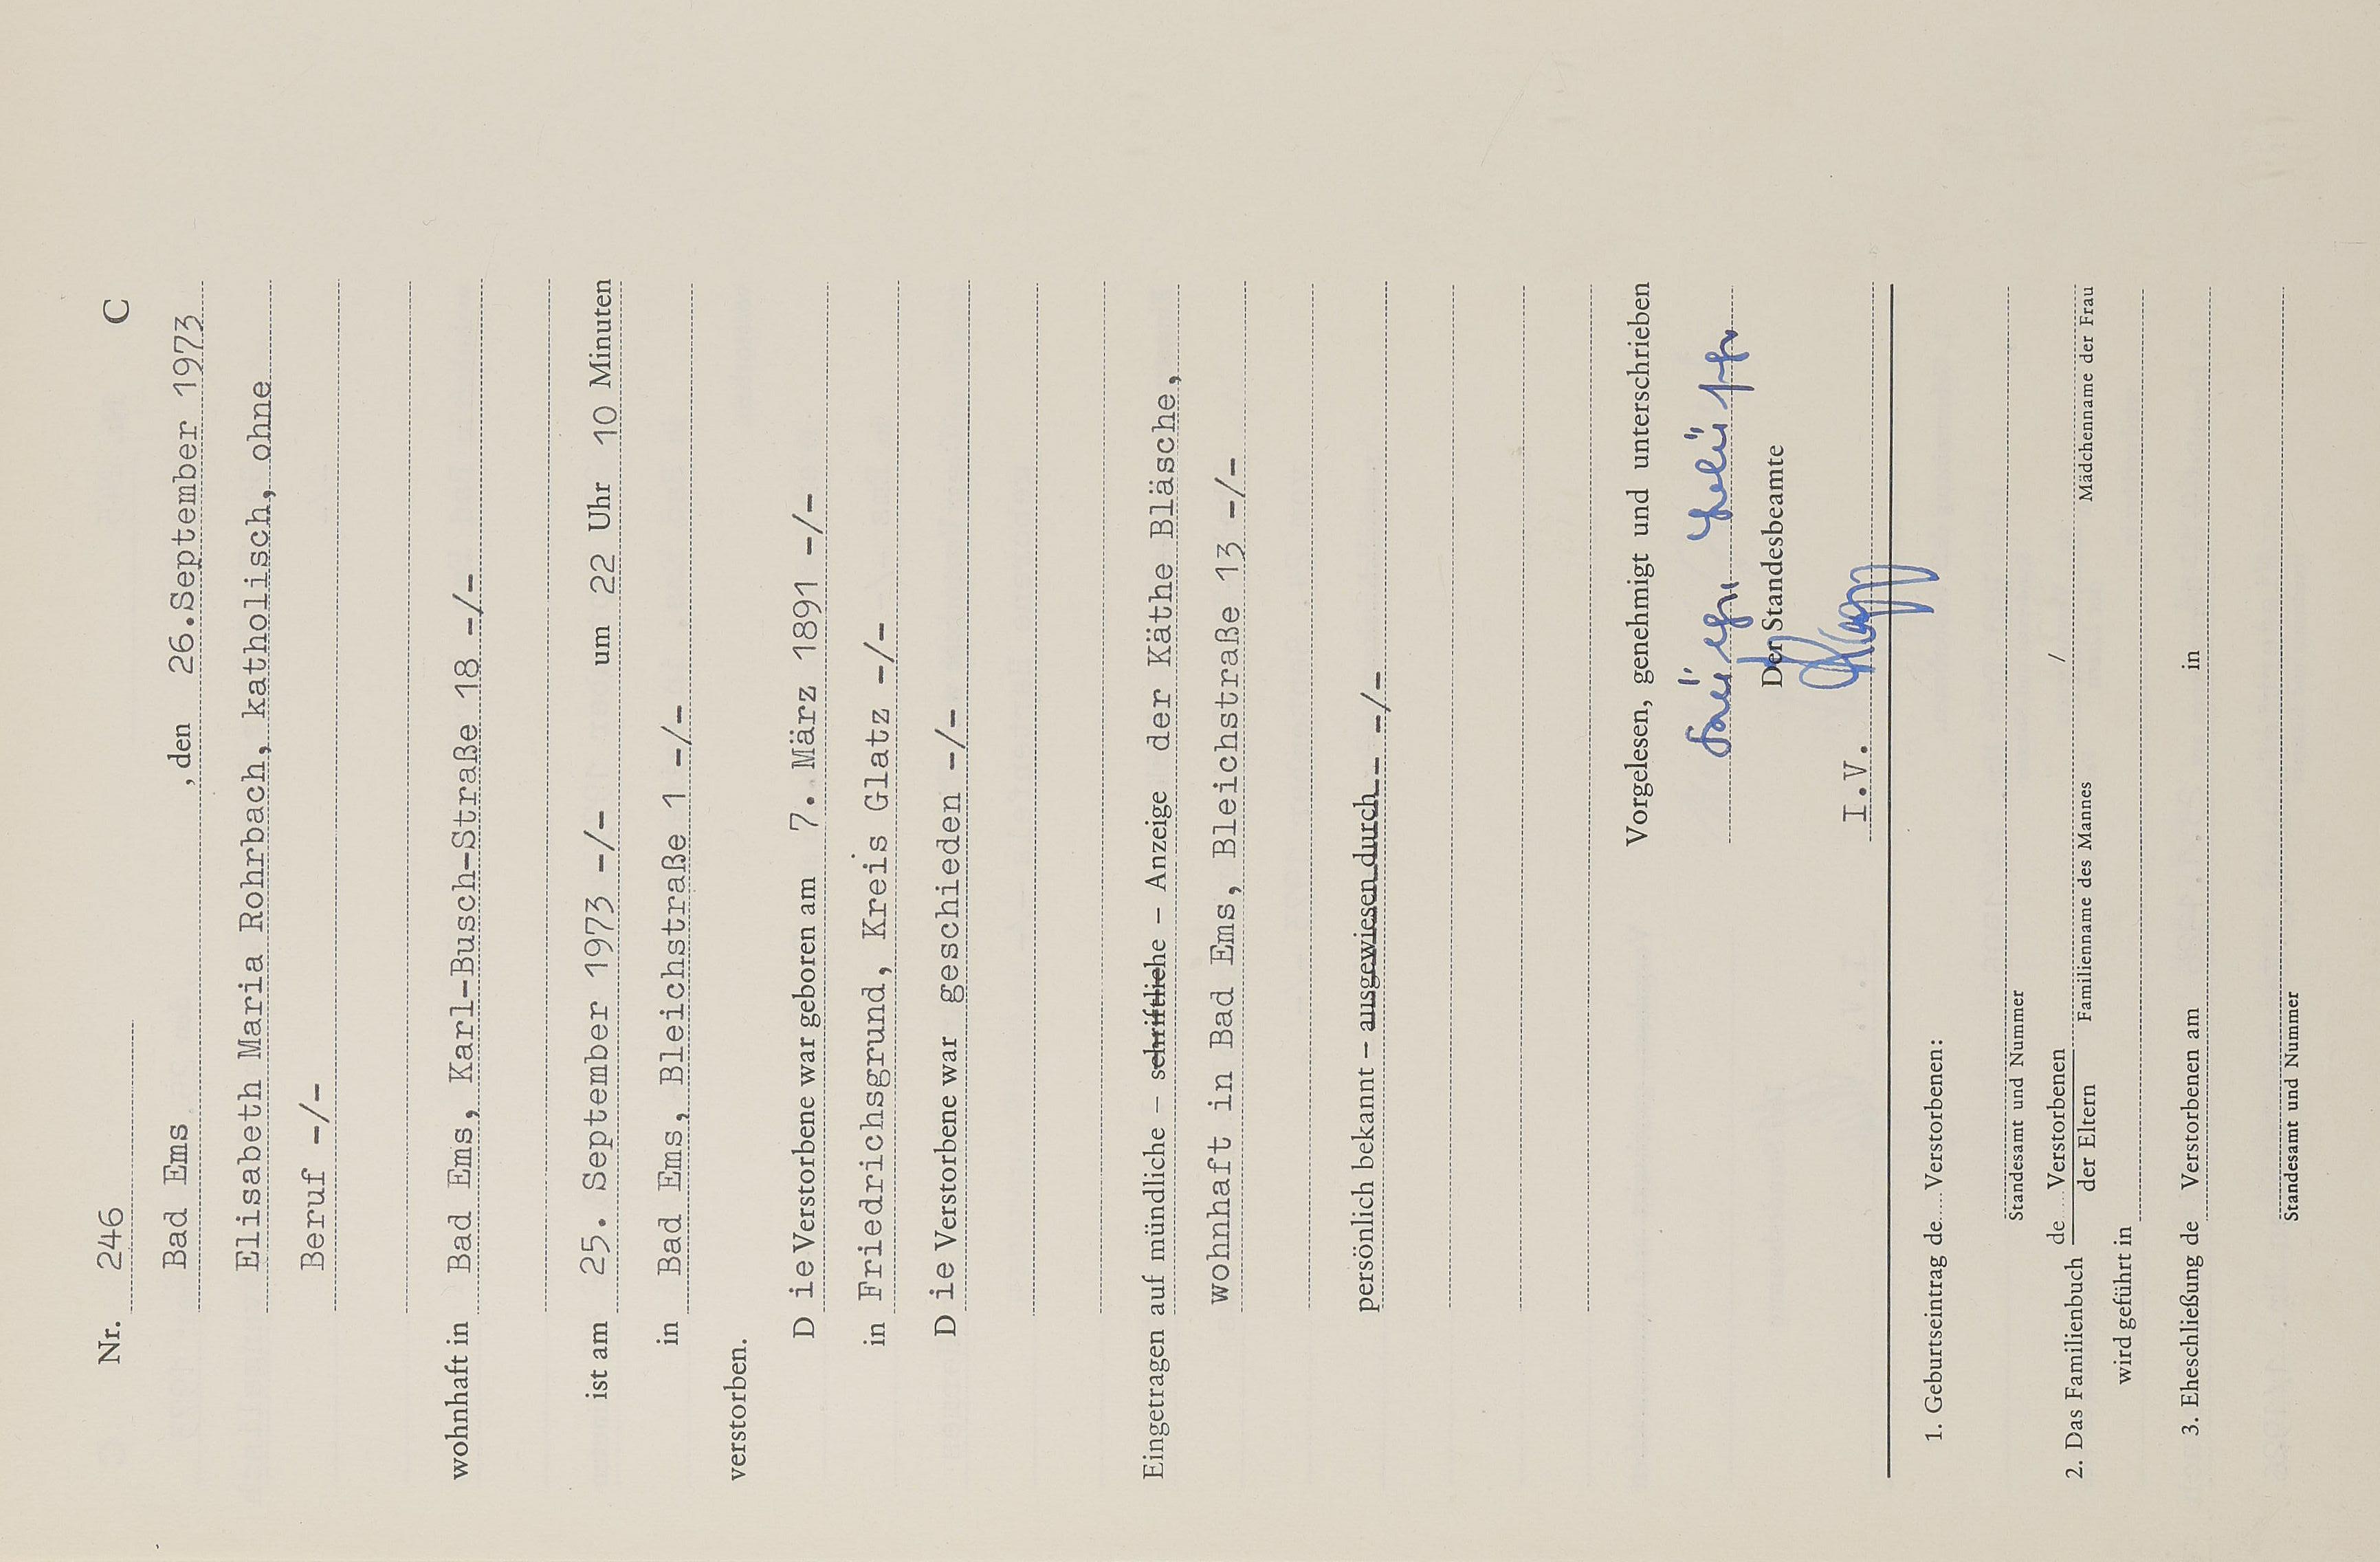 Nr. 246 C
Bad Ems , den 26.September 1973
Elisabeth Maria Rohrbach, katholisch, ohne
Beruf -/-
wohnhaft in Bad Ems, Karl-Busch-Straße 18 -/-
ist am 25. September 1973 -/- um 22 Uhr 10 Minuten
in Bad Ems, Bleichstraße 1 -/-
verstorben.
D ie Verstorbene war geboren am 7. März 1891 -/-
in Friedrichsgrund, Kreis Glatz -/-
D ie Verstorbene war geschieden -/-
Eingetragen auf mündliche – schriftliche – Anzeige der Käthe Bläsche,
wohnhaft in Bad Ems, Bleichstraße 13 -/-
persönlich bekannt – ausgewiesen durch -/-
Vorgelesen, genehmigt und unterschrieben
Der Standesbeamte
I.V.
1. Geburtseintrag de....Verstorbenen:
Standesamt und Nummer
2. Das Familienbuch de.....Verstorbenen /
der Eltern Familienname des Mannes Mädchenname der Frau
wird geführt in
3. Eheschließung de Verstorbenen am in
Standesamt und Nummer